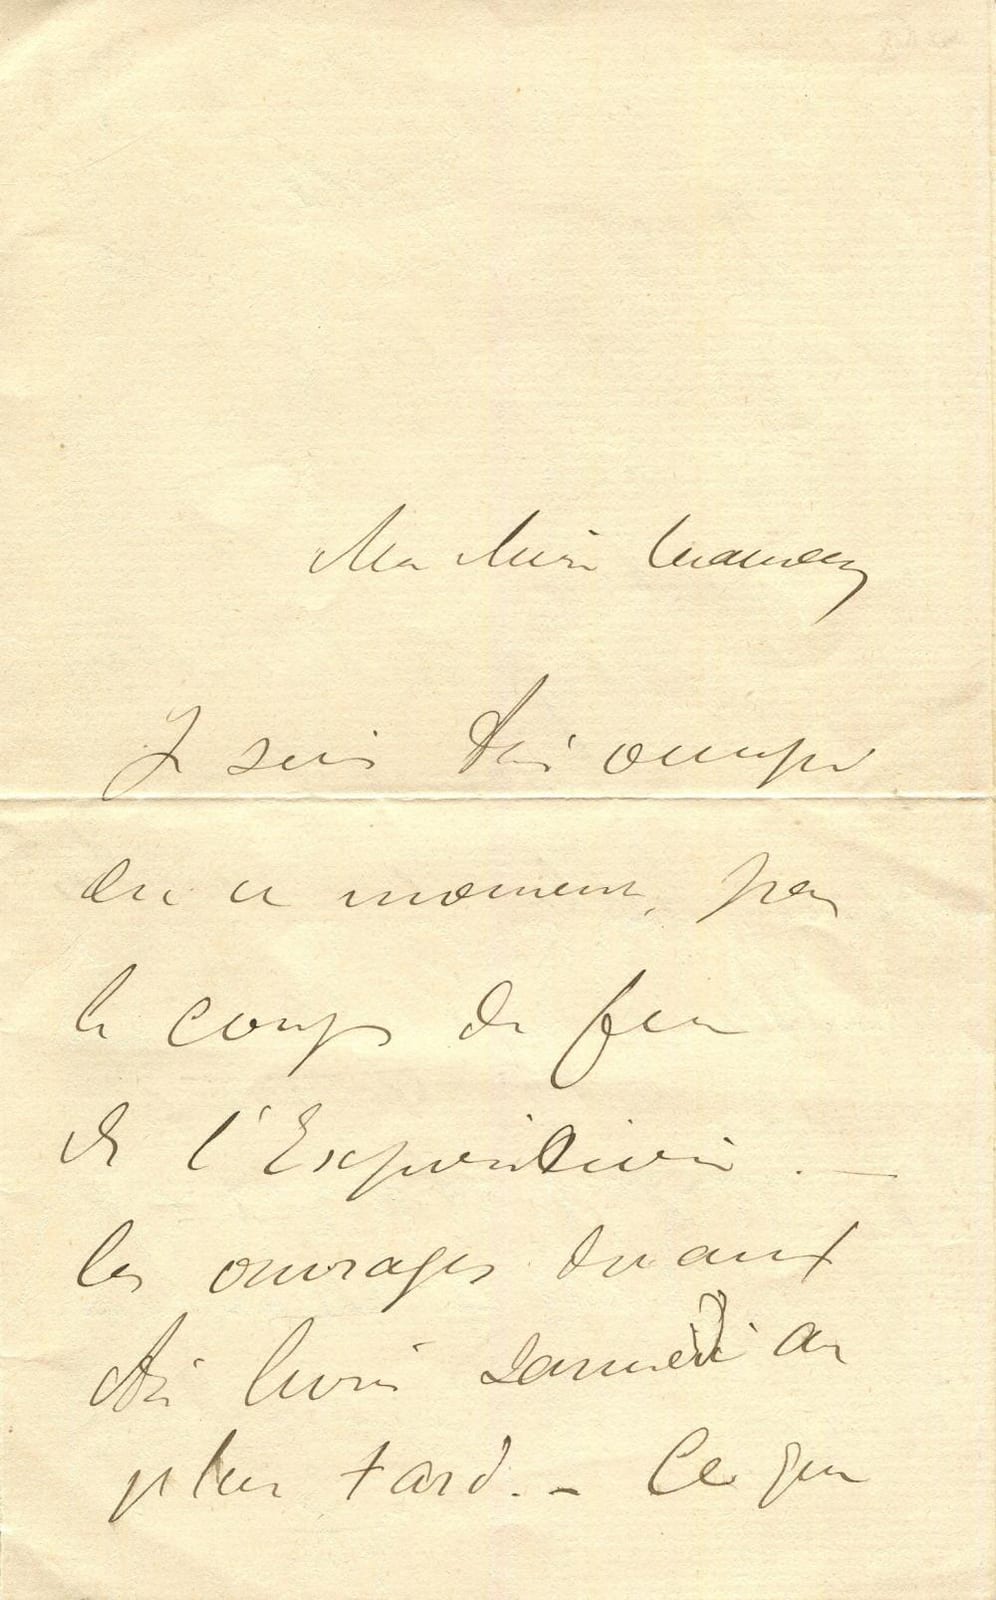 Ma chère maman
Je suis très occupé
en ce moment, par
le coup de feu
de l'Exposition. —
les ouvrages devant
être livrés samedi au
plus tard. — Ce que